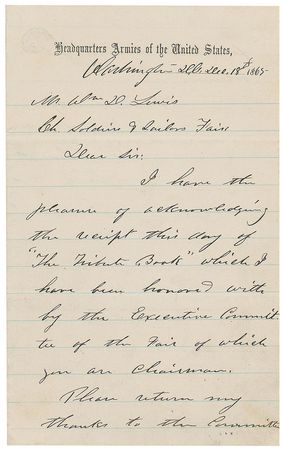 Headquarters Armies of the United States,
Washington D.C. Dec. 18th 1865
Mr. Wm D. Lewis
Ch. Soldiers & Sailors Fair
Dear Sir:
I have the
pleasure of acknowledging
the receipt this day of
"The Tribute Book" which I
have been honored with
by the Executive Committ-
tee of the Fair of which
you are Chairman.
Please return my
thanks to the Committee